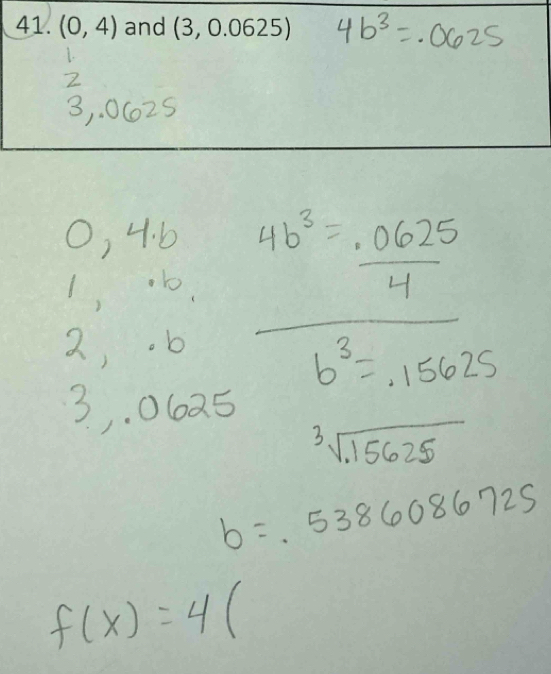 41. (0, 4) and (3, 0.0625) 4b³ = .0625
1
2
3, .0625
0, 4·b
1, ·b
2, ·b
3, .0625
4b³ = .0625
4
b³ = .15625
³√.15625
b = .5386086725
f(x) = 4(